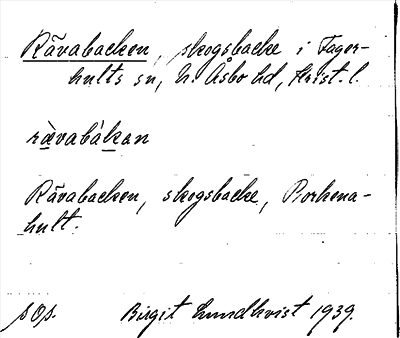 Rävabacken, skogsbacke i Fager-
hults sn, N. Åsbo hd, Krist. l.
rävabàkan
Rävabacken, skogsbacke, Porkena-
hult.
sOs. Birgit Lundkvist 1939.